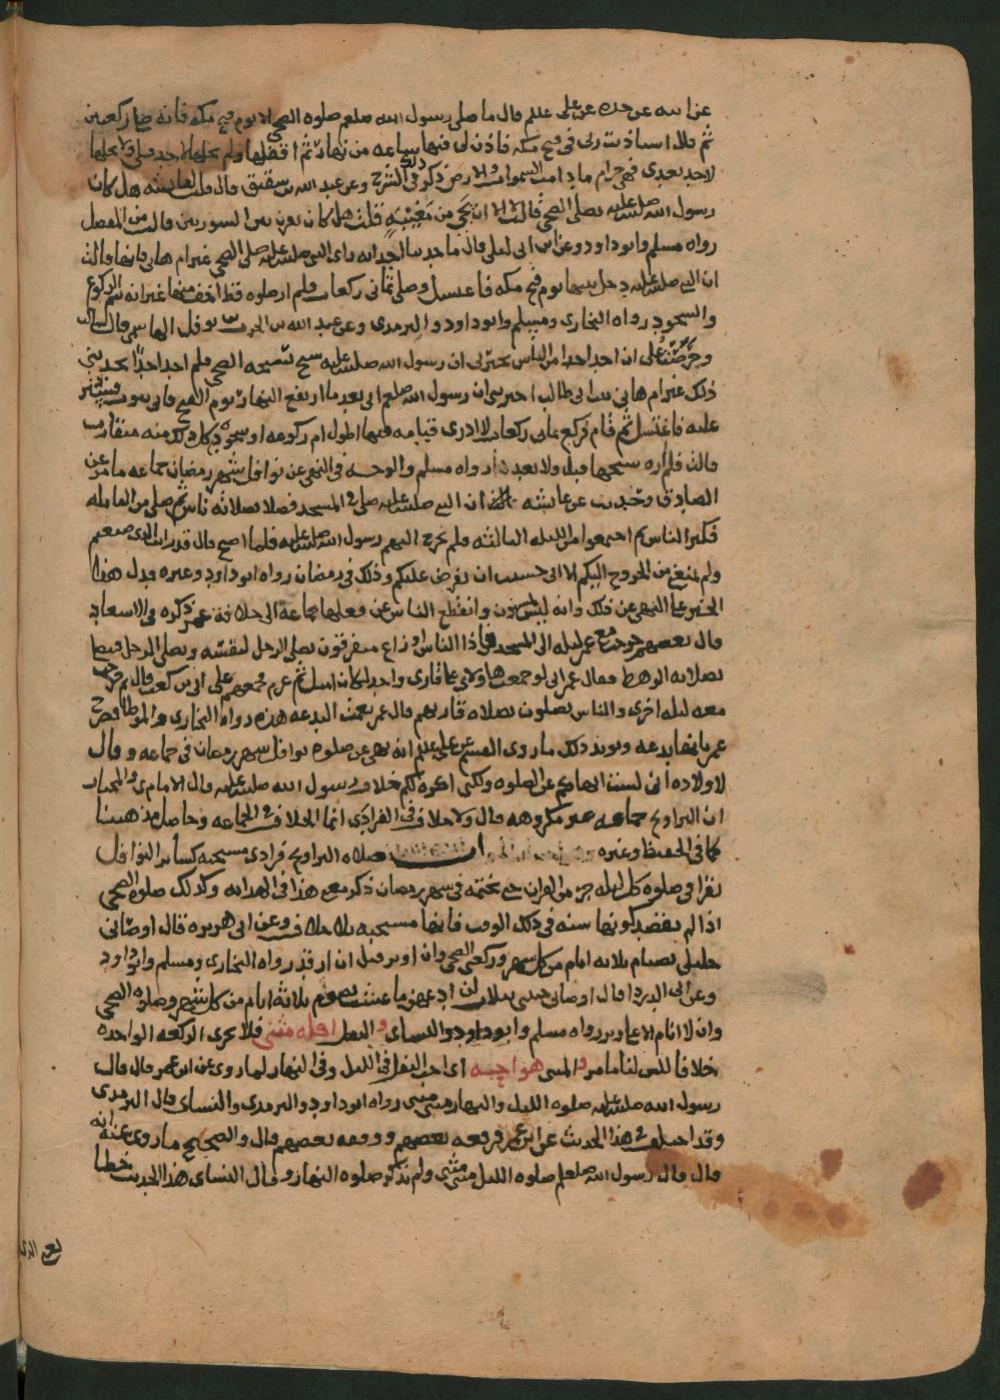 عن ابيه عن جده عن علي علم قال ما صلى رسول الله صلعم صلوه الضحى الا يوم فتح مكه فانه صلى ركعتين
ثم قال استاذنت ربي في فتح مكه فاذن لي فيها ساعه من نهار ثم اقفلها ولم يحلها لاحد قبلي ولا يحلها
لاحد بعدي فهي حرام ما دامت السموات والارض ذكره في الشرح وعن عبد الله بن شقيق قال قلت لعائشه هل كان
رسول الله صلى الله عليه يصلي الضحى قالت لا الا ان يجي من مغيبه قلت هل كان يقرن بين السورتين قالت من المفصل
رواه مسلم وابو داود وعن ابن ابي ليلى قال ما حدثنا احد انه راى النبي صلى الله عليه صلى الضحى غير ام هاني فانها قالت
ان النبي صلى الله عليه دخل بيتها يوم فتح مكه فاغتسل وصلى ثماني ركعات فلم ار صلوه قط اخف منها غير انه يتم الركوع
والسجود رواه البخاري ومسلم وابو داود والترمذي وعن عبد الله بن الحرث بن نوفل الهاشمي قال سالت
وحرصت على ان اجد احدا من الناس يخبرني ان رسول الله صلى الله عليه سبح سبحه الضحى فلم اجد احدا يحدثني
ذلك غير ام هاني بنت ابي طالب اخبرتني ان رسول الله صلعم اتى بعد ما ارتفع النهار يوم الفتح فاتي بثوب فستر
عليه فاغتسل ثم قام فركع ثماني ركعات لا ادري قيامه فيها اطول ام ركوعه او سجوده كل ذلك منه متقارب
قالت فلم اره سبحها قبل ولا بعد رواه مسلم والوجه في النهي عن نوافل شهر رمضان جماعه ما مر عن
الصادق وحديث عن عائشه ان النبي صلى الله عليه صلى في المسجد فصلى بصلاته ناس ثم صلى من القابله
فكثر الناس ثم اجتمعوا من الليله الثالثه فلم يخرج اليهم رسول الله صلى الله عليه فلما اصبح قال قد رايت الذي صنعتم
ولم يمنعني من الخروج اليكم الا اني خشيت ان يفرض عليكم وذلك في رمضان رواه ابو داود وغيره فدل هذا
الخبر على النهي عن ذلك وانه ليس بمسنون وانقطع الناس عن فعلها جماعه الى خلافه عمر ذكره في الاسعاد
قال بعضهم خرجت مع عمر ليله الى المسجد فاذا الناس اوزاع متفرقون يصلي الرجل لنفسه ويصلي الرجل فيصلي
بصلاته الرهط فقال عمر اني لو جمعت هاولاي على قاري واحد لكان امثل ثم عزم فجمعهم على ابي بن كعب قال ثم خرجت
معه ليله اخرى والناس يصلون بصلاه قاريهم قال عمر نعمت البدعه هذه رواه البخاري والموطا فصرح
عمر بانها بدعه ويويد ذلك ما روى القسم عن علي علم انه نهى عن صلوه نوافل شهر رمضان في جماعه وقال
لاولاده اني لست انهاكم عن الصلوه ولكني اكره لكم خلاف رسول الله صلى الله عليه قال الامام ى والمختار
ان التراويح جماعه غير مكروهه قال ولا خلاف في الفرادى انما الخلاف في الجماعه وحاصل مذهبنا
كما في الحفيظ وغيره ان صلاه التراويح فرادى مستحبه كسائر النوافل
يقرا في صلوه كل ليله جزء من القران حتى يختمه في شهر رمضان ذكر معنى هذا في الهدايه وكذلك صلوه الضحى
اذا لم يقصد كونها سنه في ذلك الوقت فانها مستحبه بلا خلاف وعن ابي هريره قال اوصاني
خليلي بصيام ثلاثه ايام من كل شهر وركعتي الضحى وان اوتر قبل ان ارقد رواه البخاري ومسلم وابو داود
وعن ابي الدردا قال اوصاني حبيبي بثلاث لن ادعهن ما عشت بصوم ثلاثه ايام من كل شهر وصلوه الضحى
وان لا انام الا على وتر رواه مسلم وابو داود والنساي و النفل اقله مثنى فلا يجزي الركعه الواحده
خلافا للش لنا ما مر و المثنى هو احبه اي احب النفل في الليل وفي النهار لما روي عن ابن عمر قال قال
رسول الله صلى الله عليه صلوه الليل والنهار مثنى مثنى رواه ابو داود والترمذي والنساي قال الترمذي
وقد اختلف في هذا الحديث عن ابن عمر فرفعه بعضهم ووقفه بعضهم قال والصحيح ما روي عنه انه
قال قال رسول الله صلعم صلوه الليل مثنى مثنى ولم يذكر صلوه النهار وقال النساي هذا الحديث خطا